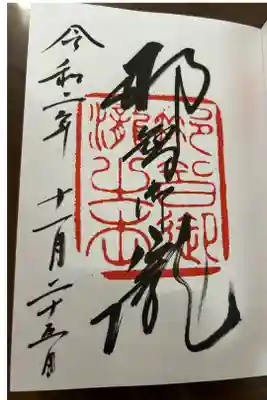 那智御瀧
令和二年 十一月二十五日